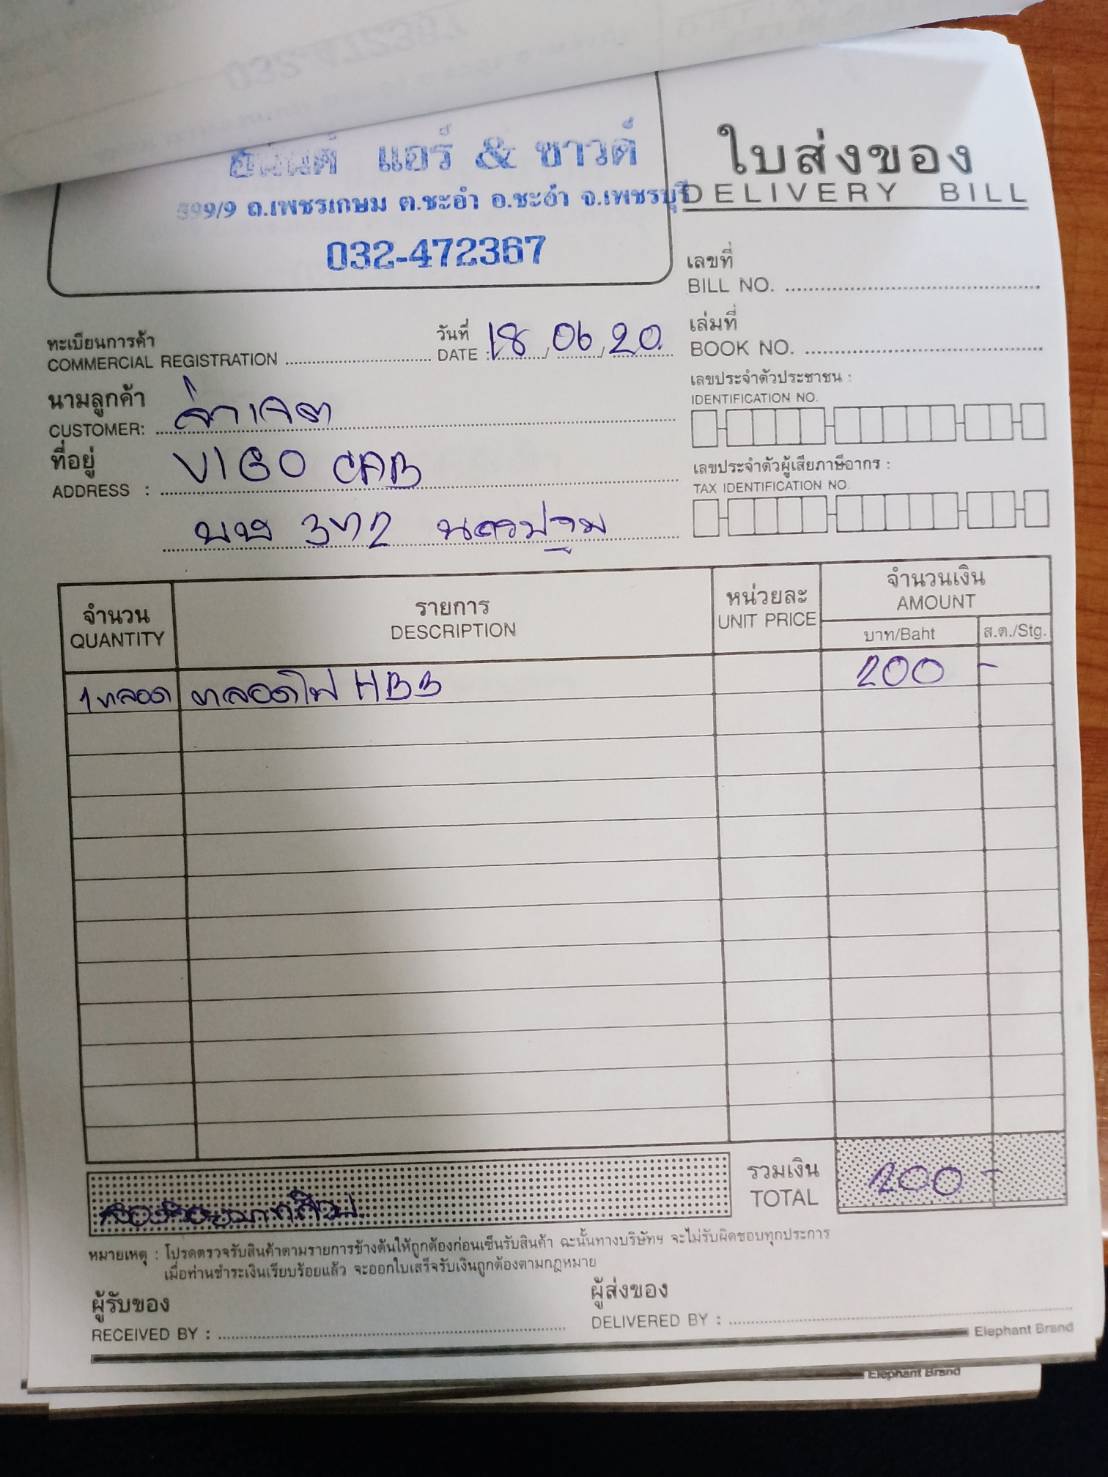 แอร์ & ซาวด์
399/9 ถ.เพชรเกษม ต.ชะอำ อ.ชะอำ จ.เพชรบุรี
032-472367
ใบส่งของ
DELIVERY BILL
เลขที่
BILL NO.
ทะเบียนการค้า
COMMERCIAL REGISTRATION
วันที่
DATE : 18 / 06 / 20
เล่มที่
BOOK NO.
นามลูกค้า
CUSTOMER: จ่าเจต
เลขประจำตัวประชาชน :
IDENTIFICATION NO.
ที่อยู่
ADDRESS : VIGO CAB
เลขประจำตัวผู้เสียภาษีอากร :
TAX IDENTIFICATION NO.
372 นครปฐม
จำนวน
QUANTITY
รายการ
DESCRIPTION
หน่วยละ
UNIT PRICE
จำนวนเงิน
AMOUNT
บาท/Baht ส.ต./Stg.
1 หลอด หลอดไฟ HB3 200 -
รวมเงิน
TOTAL 200 -
หมายเหตุ : โปรดตรวจรับสินค้าตามรายการข้างต้นให้ถูกต้องก่อนเซ็นรับสินค้า ฉะนั้นทางบริษัทฯ จะไม่รับผิดชอบทุกประการ
เมื่อท่านชำระเงินเรียบร้อยแล้ว จะออกใบเสร็จรับเงินถูกต้องตามกฎหมาย
ผู้รับของ
RECEIVED BY :
ผู้ส่งของ
DELIVERED BY :
Elephant Brand
Elephant Brand